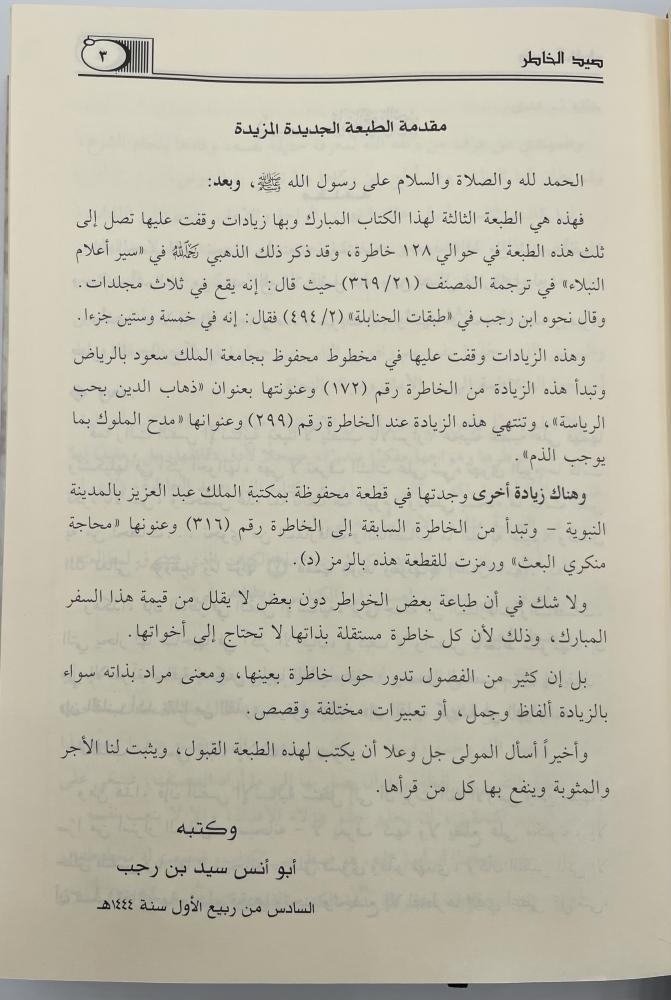 صيد الخاطر
٣
مقدمة الطبعة الجديدة المزيدة
الحمد لله والصلاة والسلام على رسول الله ﷺ، وبعد:
فهذه هي الطبعة الثالثة لهذا الكتاب المبارك وبها زيادات وقفت عليها تصل إلى
ثلث هذه الطبعة في حوالي ١٢٨ خاطرة، وقد ذكر ذلك الذهبي رَحِمَهُ اللهُ في «سير أعلام
النبلاء» في ترجمة المصنف (٣٦٩/٢١) حيث قال: إنه يقع في ثلاث مجلدات.
وقال نحوه ابن رجب في «طبقات الحنابلة» (٤٩٤/٢) فقال: إنه في خمسة وستين جزءا.
وهذه الزيادات وقفت عليها في مخطوط محفوظ بجامعة الملك سعود بالرياض
وتبدأ هذه الزيادة من الخاطرة رقم (١٧٢) وعنونتها بعنوان «ذهاب الدين بحب
الرياسة»، وتنتهي هذه الزيادة عند الخاطرة رقم (٢٩٩) وعنوانها «مدح الملوك بما
يوجب الذم».
وهناك زيادة أخرى وجدتها في قطعة محفوظة بمكتبة الملك عبد العزيز بالمدينة
النبوية – وتبدأ من الخاطرة السابقة إلى الخاطرة رقم (٣١٦) وعنونها «محاجة
منكري البعث» ورمزت للقطعة هذه بالرمز (د).
ولا شك في أن طباعة بعض الخواطر دون بعض لا يقلل من قيمة هذا السفر
المبارك، وذلك لأن كل خاطرة مستقلة بذاتها لا تحتاج إلى أخواتها.
بل إن كثير من الفصول تدور حول خاطرة بعينها، ومعنى مراد بذاته سواء
بالزيادة ألفاظ وجمل، أو تعبيرات مختلفة وقصص.
وأخيراً أسأل المولى جل وعلا أن يكتب لهذه الطبعة القبول، ويثبت لنا الأجر
والمثوبة وينفع بها كل من قرأها.
وكتبه
أبو أنس سيد بن رجب
السادس من ربيع الأول سنة ١٤٤٤هـ